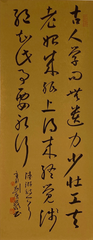 古人学问無遗力少壮工夫
老始成纸上得来终觉浅
绝知此事要躬行
陆游诗